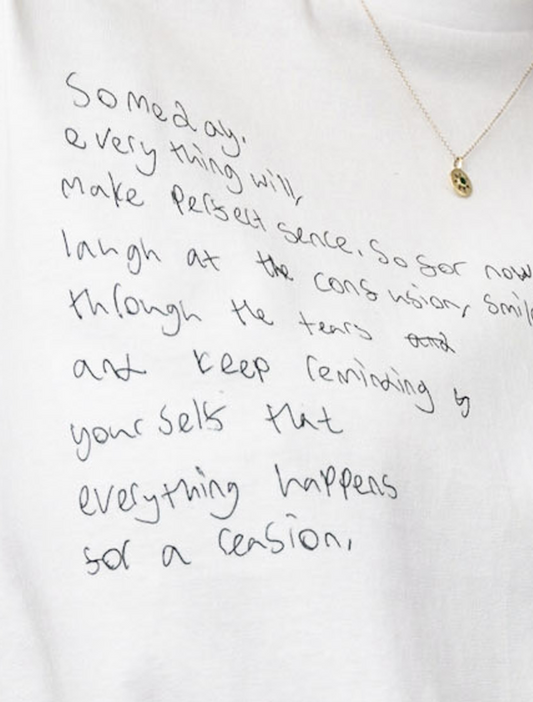 Someday,
everything will,
make perfect sence. So for now
laugh at the confusion, smil
through the tears and
and keep reminding y
yourself that
everything happens
for a reasion,